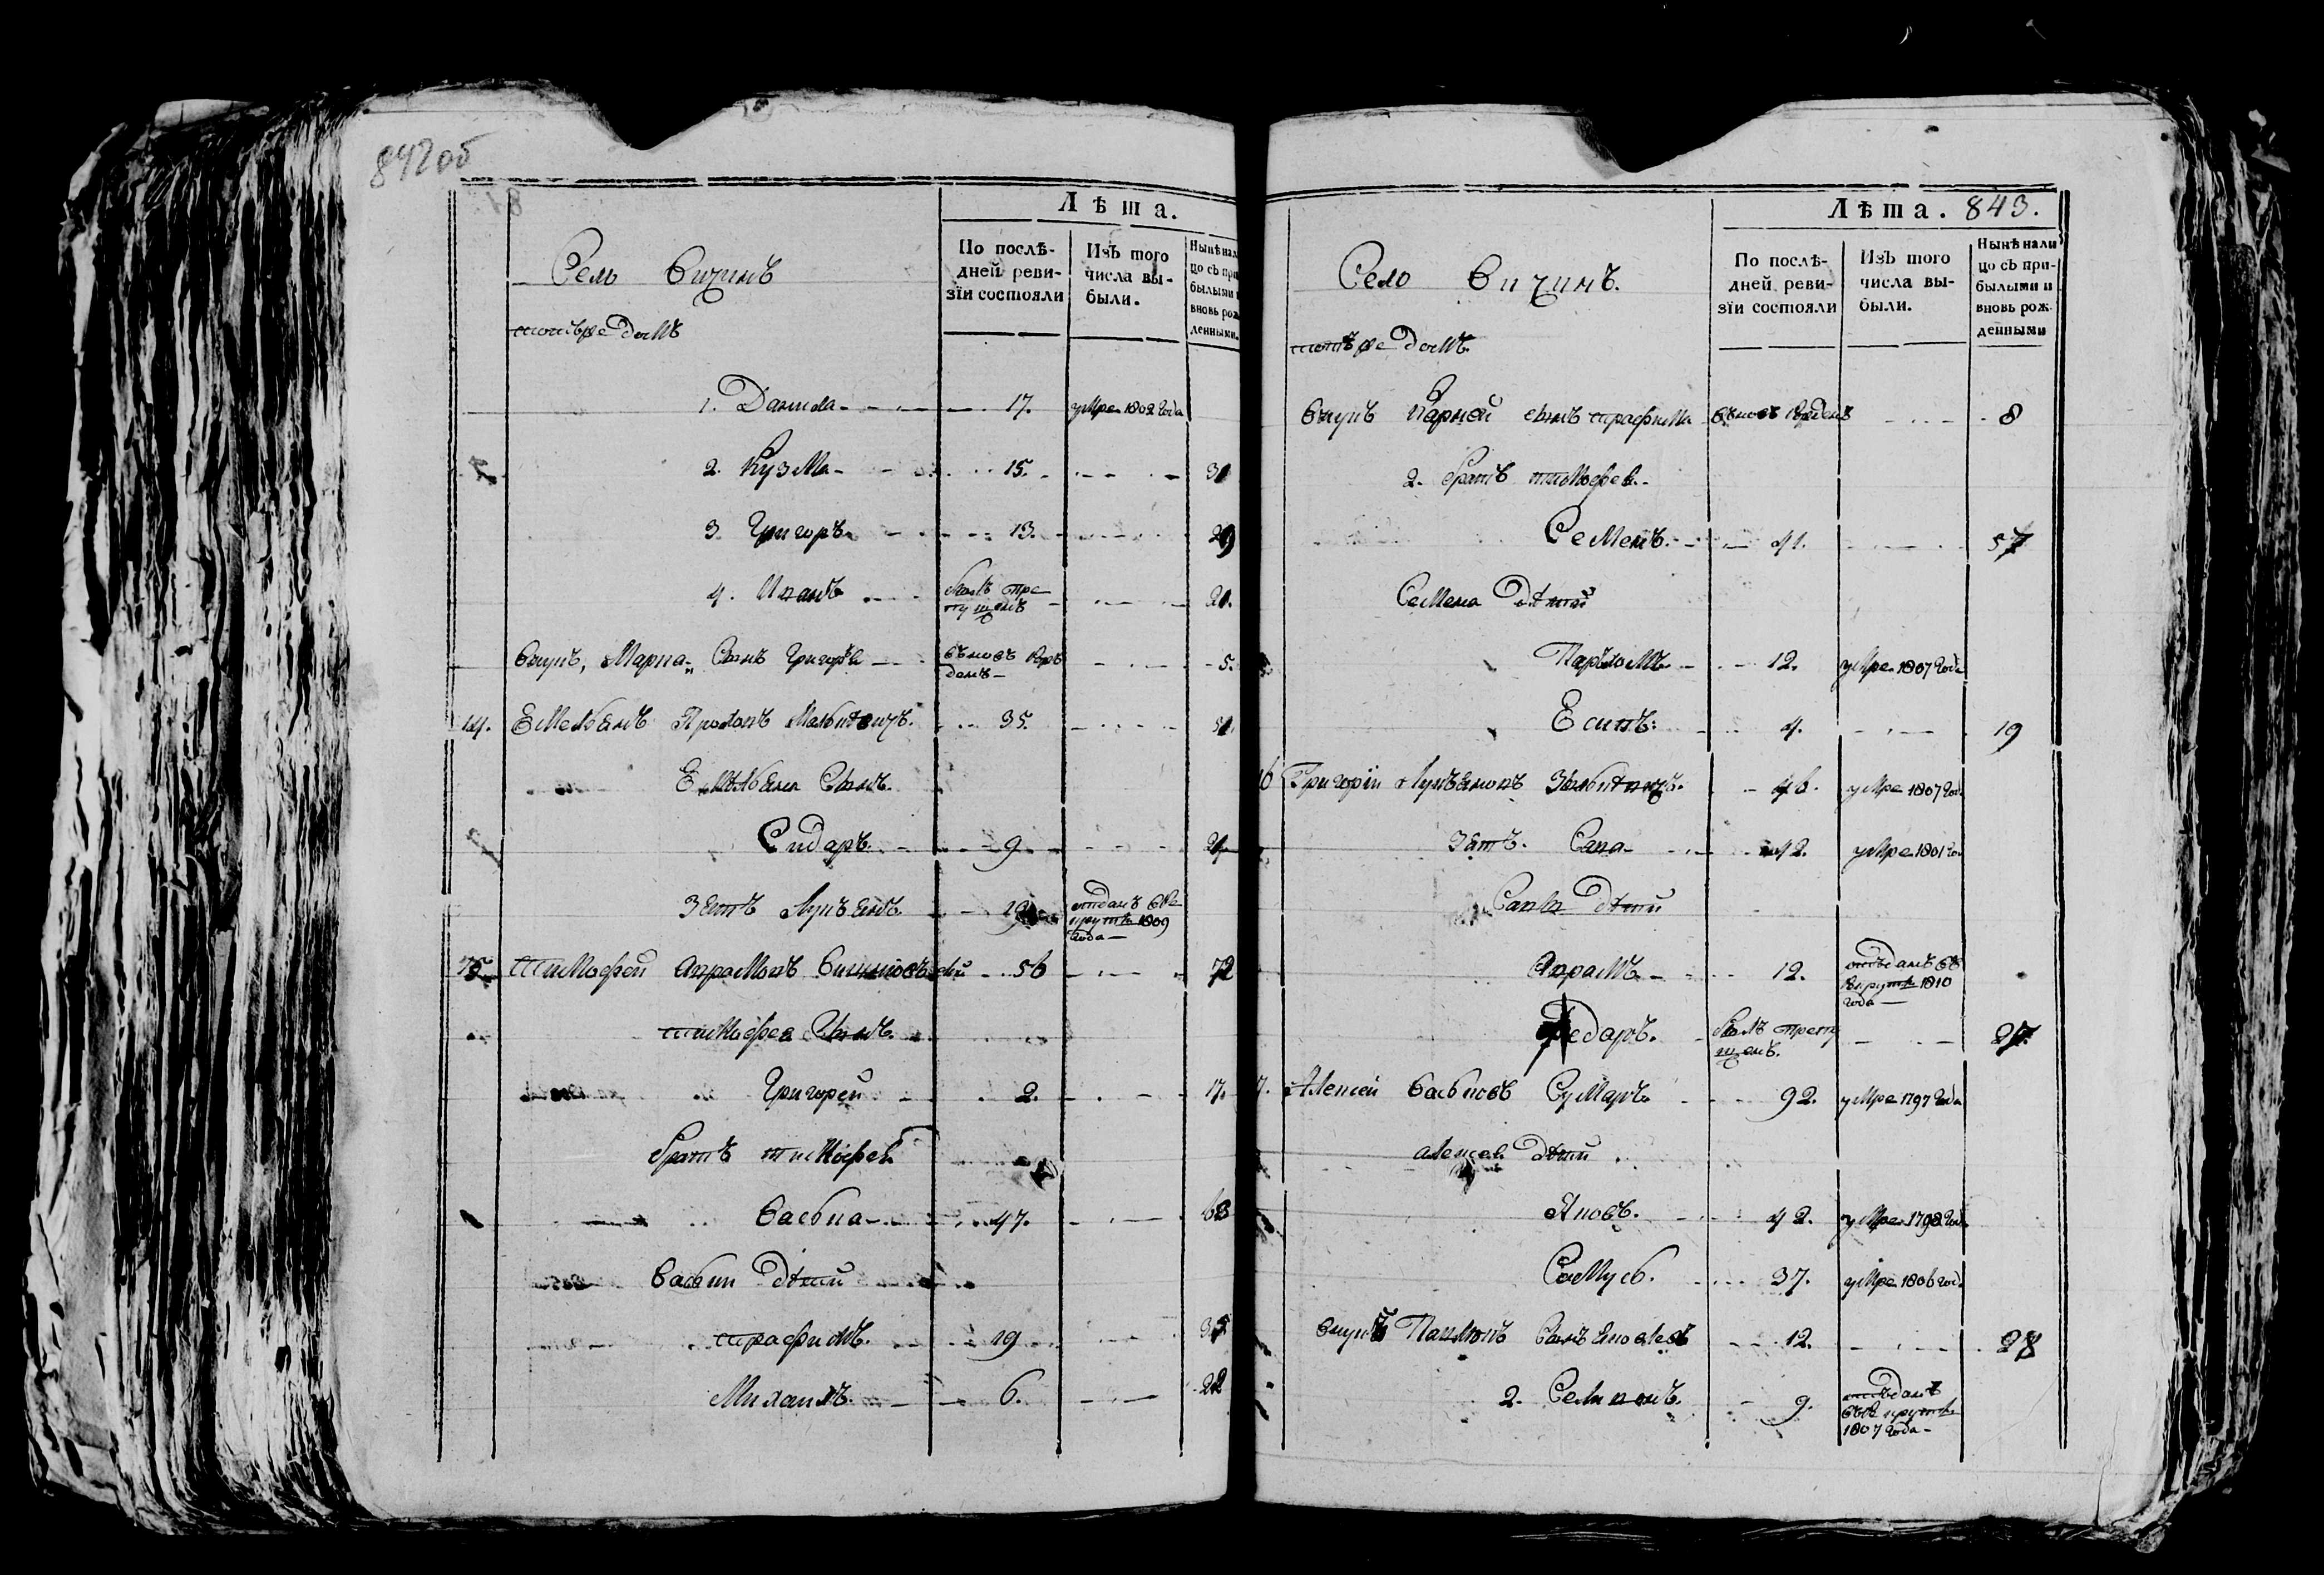 842 об
Лѣта.
Село Вичинъ
По послѣ-
дней реви-
зіи состояли
Изъ того
числа вы-
были.
Нынѣ нали
цо съ при
былыми и
вновь рож
денными.
тотъже домъ
1. Данила 17. умре 1802 года
2. Кузма 15. 31
3. Григоръ 13. 29
4. Иванъ былъ про
пущенъ 20.
Внукъ, Марка Сынъ Григоръя вновь рож
денъ 5.
14. Емельянъ 35. 51.
Емельяна Сынъ.
Сидаръ 9
Зять Лукъянъ 19 отданъ в ре
круты 1809
года
15. Тимофей Аврамовъ 56 72
Тимофея Сынъ.
Григорей 2. 17.
Братъ Тимофея
Васька 47. 63
Васьки дѣти
Трафимъ. 19 35
Михаилъ. 6. 22
Лѣта. 843.
Село Вичинъ.
По послѣ-
дней реви-
зіи состояли
Изъ того
числа вы-
были.
Нынѣ нали
цо съ при-
былыми и
вновь рож-
денными
тотъже домъ.
Внукъ Карней сынъ Трафима вновь рожденъ 8
2. братъ Тимофея.
Семенъ. 41. 57
Семена Дѣти
Пархомъ 12. умре 1807 года
Есипъ. 4. 19
16 Григорiй Лукъяновъ 46. умре 1807 год
Зять. Сава 42. умре 1801 го
Савы дѣти
Аврамъ 12. отъданъ въ
рекруты 1810
года
Федаръ. былъ пропу
щенъ. 27.
17. Алексей Васьковъ 92. умре 1797 года
Алексея дѣти.
Яковъ. 42. умре 1798 год
Самусь. 37. умре 1806 год
Внукъ Павлюкъ Сынъ Яковлевъ 12. 28
2. Селивонъ. 9. отъданъ
въ рекруты
1807 года